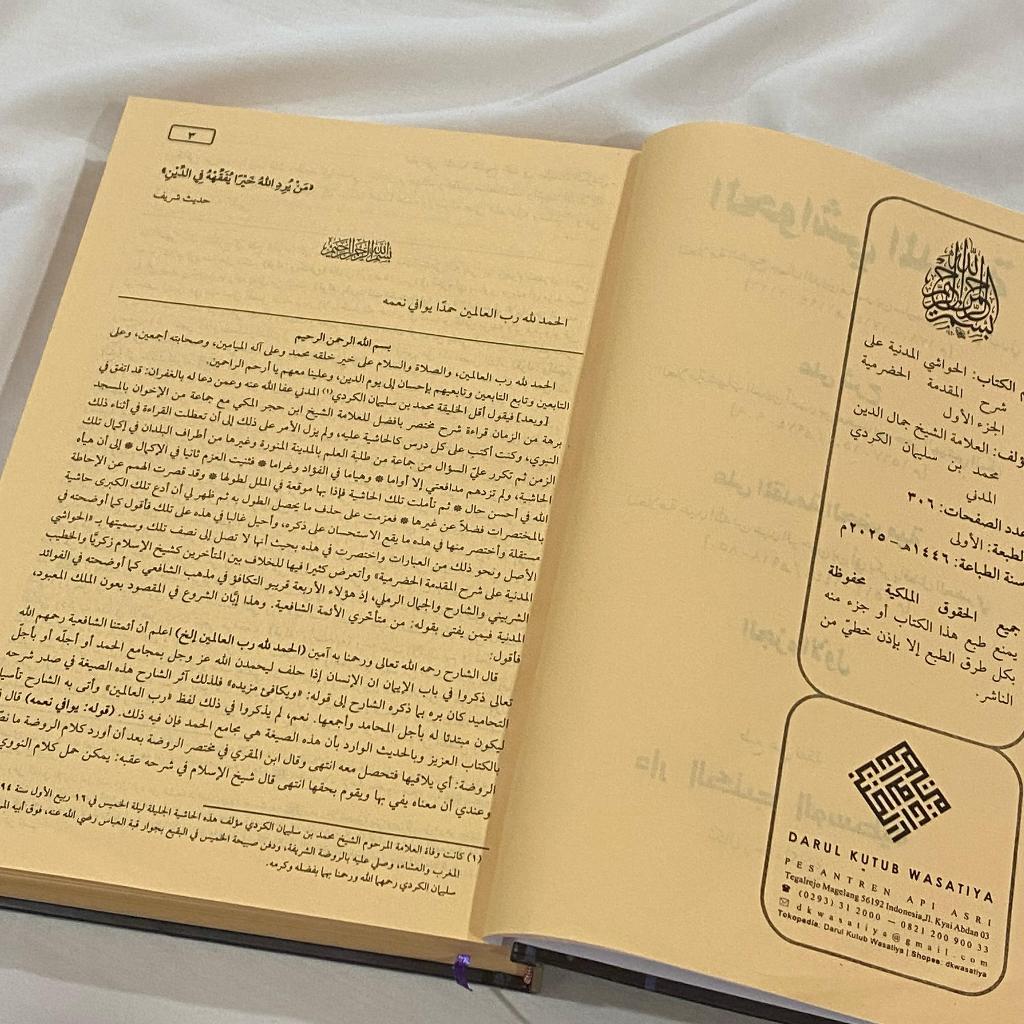 بسم الله الرحمن الرحيم
الكتاب: الحواشي المدنية على
شرح المقدمة الحضرمية
الجزء الأول
العلامة الشيخ جمال الدين
محمد بن سليمان الكردي
المدني
الصفحات: ٣٠٦
الطبعة: الأولى
سنة الطباعة: ١٤٤٦هـ - ٢٠٢٥م
جميع الحقوق الملكية محفوظة
يمنع طبع هذا الكتاب أو جزء منه
بكل طرق الطبع إلا بإذن خطيّ من
الناشر.
DARUL KUTUB WASATIYA
PESANTREN API ASRI
Tegalrejo Magelang 56192 Indonesia, Jl. Kyai Abdan 03
(0293) 31 2000 — 0821 200 900 33
dkwasatiya@gmail.com
Tokopedia: Darul Kutub Wasatiya | Shopee: dkwasatiya
٣
«مَنْ يُرِدِ اللهُ خَيْرًا يُفَقِّهْهُ فِي الدِّيْنِ»
حديث شريف
بسم الله الرحمن الرحيم
الحمد لله رب العالمين حمدًا يوافي نعمه
بسم الله الرحمن الرحيم
الحمد لله رب العالمين، والصلاة والسلام على خير خلقه محمد وعلى آله الميامين، وصحابته أجمعين، وعلى
التابعين وتابع التابعين وتابعيهم بإحسان إلى يوم الدين، وعلينا معهم يا أرحم الراحمين.
[وبعد] فيقول أقل الخليقة محمد بن سليمان الكردي(١) المدني عفا الله عنه وعمن دعا له بالغفران: قد اتفق في
برهة من الزمان قراءة شرح مختصر بافضل للعلامة الشيخ ابن حجر المكي مع جماعة من الإخوان بالمسجد
النبوي، وكنت أكتب على كل درس كالحاشية عليه، ولم يزل الأمر على ذلك إلى أن تعطلت القراءة في أثناء ذلك
الزمن ثم تكرر عليّ السؤال من جماعة من طلبة العلم بالمدينة المنورة وغيرها من أطراف البلدان في إكمال تلك
الحاشية، ولم تزدهم مدافعتي إلا أواما * وهياما في الفؤاد وغراما * فثنيت العزم ثانيا في الإكمال * إلى أن هيأه
الله في أحسن حال * ثم تأملت تلك الحاشية فإذا بها موقعة في الملل لطولها * وقد قصرت الهمم عن الإحاطة
بالمختصرات فضلاً عن غيرها * فعزمت على حذف ما يحصل الطول به ثم ظهر لي أن أدع تلك الكبرى حاشية
مستقلة وأختصر منها في هذه ما يقع الاستحسان على ذكره، وأحيل غالبا في هذه على تلك فأقول كما أوضحته في
الأصل ونحو ذلك من العبارات واختصرت في هذه بحيث أنها لا تصل إلى نصف تلك وسميتها بـ «الحواشي
المدنية على شرح المقدمة الحضرمية» وأتعرض كثيرا فيها للخلاف بين المتأخرين كشيخ الإسلام زكريّا والخطيب
الشربيني والشارح والجمال الرملي، إذ هؤلاء الأربعة قريبو التكافؤ في مذهب الشافعي كما أوضحته في الفوائد
المدنية فيمن يفتى بقوله: من متأخري الأئمة الشافعية. وهذا إبّان الشروع في المقصود بعون الملك المعبود،
فأقول:
قال الشارح رحمه الله تعالى ورحمنا به آمين (الحمد لله رب العالمين إلخ) اعلم أن أئمتنا الشافعية رحمهم الله
تعالى ذكروا في باب الإيمان ان الإنسان إذا حلف ليحمدن الله عز وجل بمجامع الحمد أو أجلّه أو بأجلّ
التحاميد كان بره بما ذكره الشارح إلى قوله: «ويكافئ مزيده» فلذلك آثر الشارح هذه الصيغة في صدر شرحه
ليكون مبتدئا له بأجل المحامد وأجمعها. نعم، لم يذكروا في ذلك لفظ «رب العالمين» وأتى به الشارح تأسيا
بالكتاب العزيز وبالحديث الوارد بأن هذه الصيغة هي بجامع الحمد فإن فيه ذلك. (قوله: يوافي نعمه) قال في
الروضة: أي يلاقيها فتحصل معه انتهى وقال ابن المقري في مختصر الروضة بعد أن أورد كلام الروضة ما نصّه
وعندي أن معناه يفي بها ويقوم بحقها انتهى قال شيخ الإسلام في شرحه عقبه: يمكن حمل كلام النووي
(١) كانت وفاة العلامة المرحوم الشيخ محمد بن سليمان الكردي مؤلف هذه الحاشية الجليلة ليلة الخميس في ١٦ ربيع الأول سنة
المغرب والعشاء، وصلي عليه بالروضة الشريفة، ودفن صبيحة الخميس في البقيع بجوار قبة العباس رضي الله عنه، فوق أبيه
سليمان الكردي رحمهما الله ورحمنا بهما بفضله وكرمه.